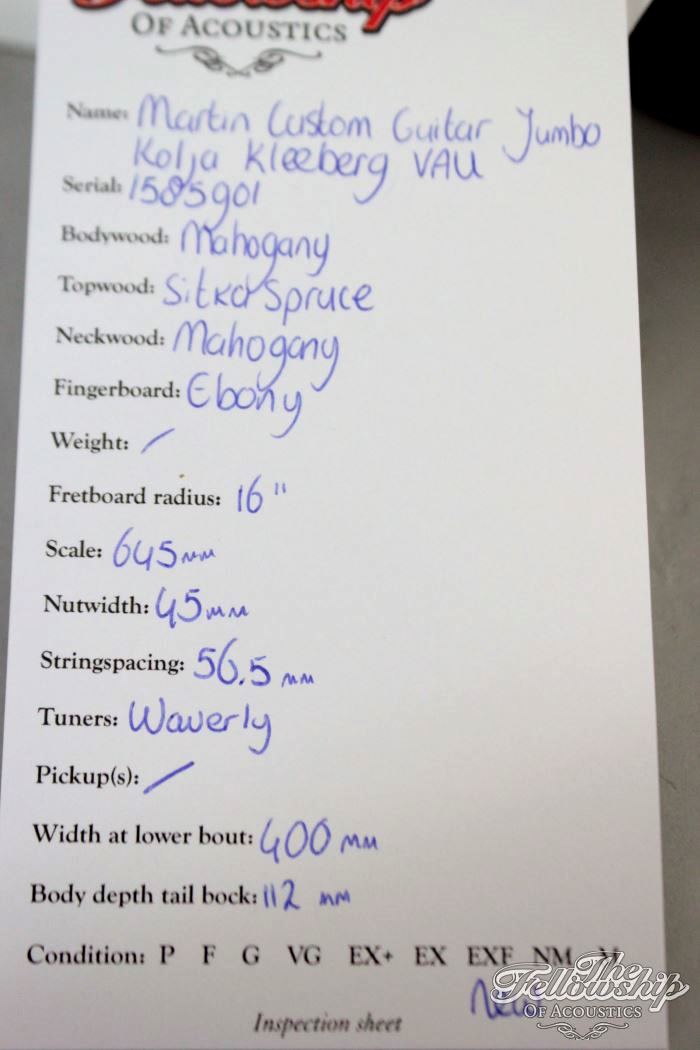 Fellowship
OF ACOUSTICS
Name: Martin Custom Guitar Jumbo
Kolja Kleeberg VAU
Serial: 1585901
Bodywood: Mahogany
Topwood: Sitka Spruce
Neckwood: Mahogany
Fingerboard: Ebony
Weight: /
Fretboard radius: 16"
Scale: 645mm
Nutwidth: 45mm
Stringspacing: 56.5 mm
Tuners: Waverly
Pickup(s): /
Width at lower bout: 400 mm
Body depth tail bock: 112 mm
Condition: P F G VG EX+ EX EXF NM M
New
Inspection sheet
The
Fellowship
OF ACOUSTICS